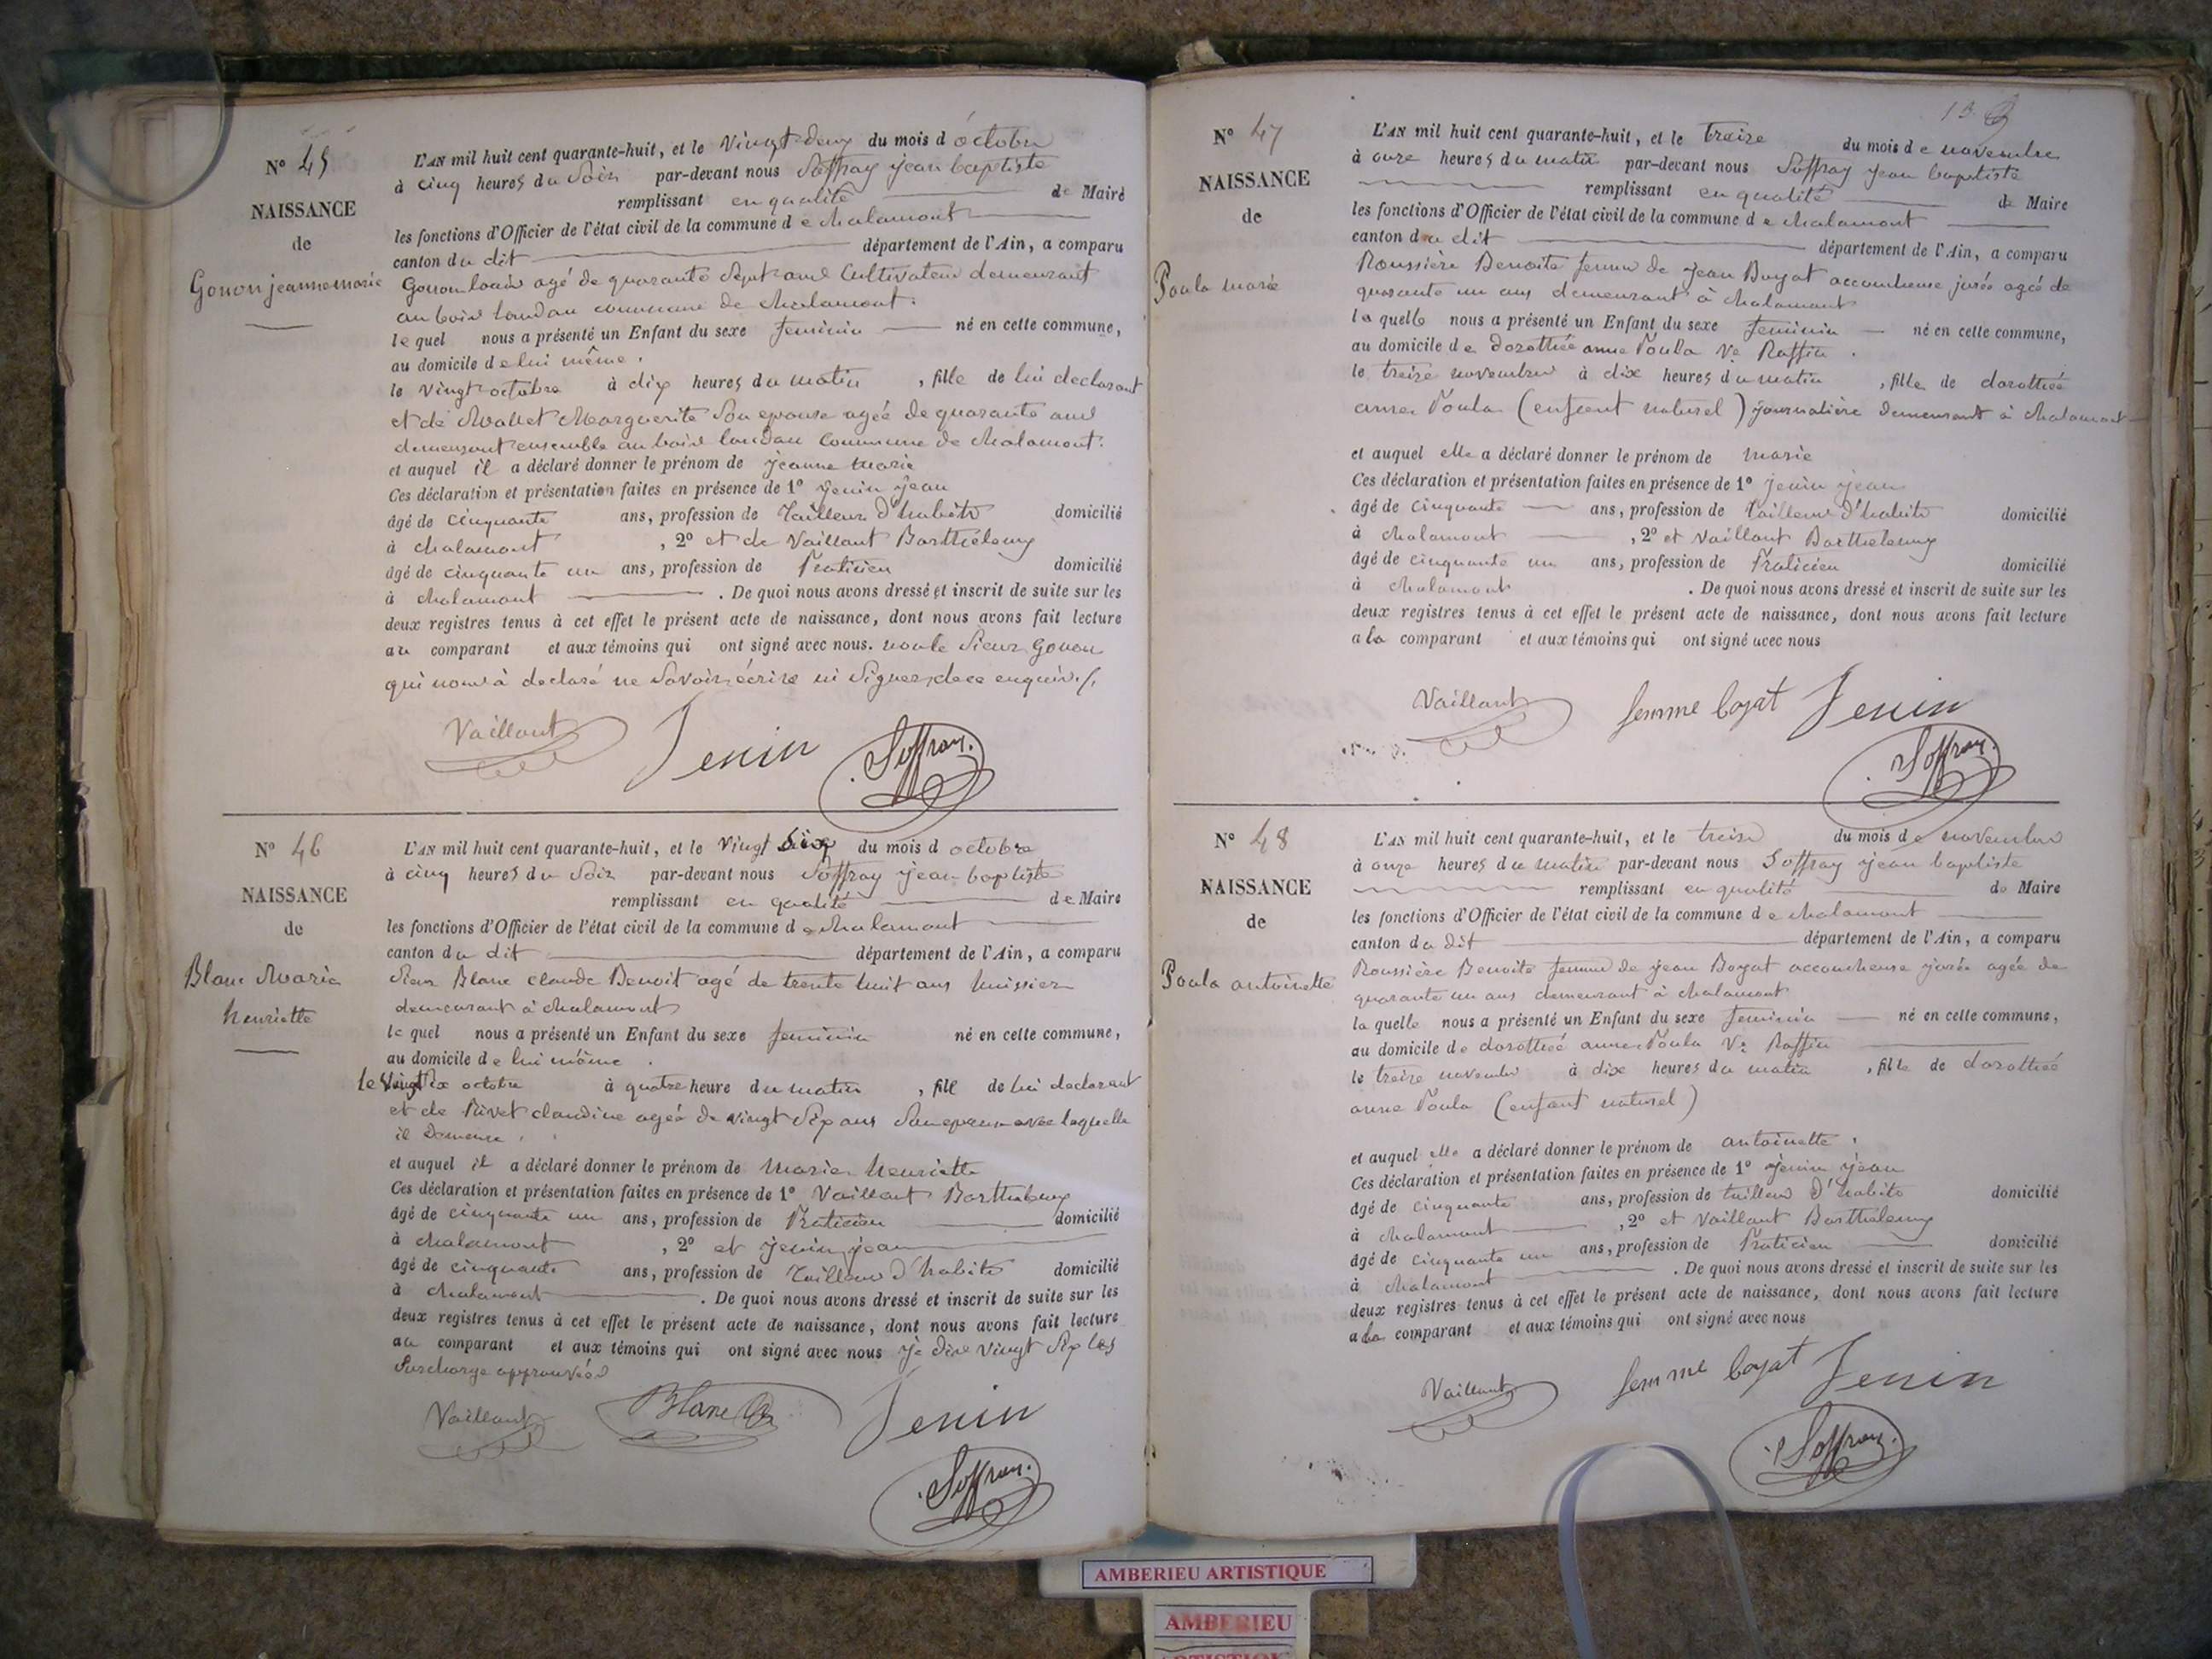 N° 45
NAISSANCE
de
Gonon jeanne marie
L'AN mil huit cent quarante-huit, et le Vingt deux du mois d'octobre
à cinq heures du Soir par-devant nous Soffray jean baptiste
remplissant en qualité de Maire
les fonctions d'Officier de l'état civil de la commune de chalamont
canton du dit département de l'Ain, a comparu
Gonon louis agé de quarante Sept ans Cultivateur demeurant
au bois landau commune de chalamont.
le quel nous a présenté un Enfant du sexe feminin né en cette commune,
au domicile de lui même.
le vingt octobre à dix heures du matin, fille de lui declarant
et de Mallet Marguerite Son epouse agée de quarante ans
demeurant ensemble au bois landau Commune de chalamont.
et auquel il a déclaré donner le prénom de jeanne marie
Ces déclaration et présentation faites en présence de 1° jenin jean
âgé de cinquante ans, profession de Tailleur d'habits domicilié
à chalamont, 2° et de Vaillant Barthélemy
âgé de cinquante un ans, profession de Praticien domicilié
à chalamont . De quoi nous avons dressé et inscrit de suite sur les
deux registres tenus à cet effet le présent acte de naissance, dont nous avons fait lecture
au comparant et aux témoins qui ont signé avec nous. non le Sieur Gonon
qui nous à declaré ne Savoir écrire ni Signer, de ce enquis ./.
Vaillant Jenin Soffray.
N° 46
NAISSANCE
de
Blanc Marie
henriette
L'AN mil huit cent quarante-huit, et le Vingt Six du mois d octobre
à cinq heures du Soir par-devant nous Soffray jean baptiste
remplissant en qualité de Maire
les fonctions d'Officier de l'état civil de la commune de chalamont
canton du dit département de l'Ain, a comparu
Sieur Blanc claude Benoit agé de trente huit ans huissier
demeurant à chalamont
le quel nous a présenté un Enfant du sexe feminin né en cette commune,
au domicile de lui même .
le Vingt Six octobre à quatre heure du matin, fill de lui declarant
et de Rivet claudine agée de vingt Six ans Son epouse avec laquelle
il Demeure.
et auquel il a déclaré donner le prénom de Marie henriette
Ces déclaration et présentation faites en présence de 1° Vaillant Barthelemy
âgé de cinquante un ans, profession de Praticien domicilié
à chalamont, 2° et jenin jean
âgé de cinquante ans, profession de Tailleur d'habits domicilié
à chalamont . De quoi nous avons dressé et inscrit de suite sur les
deux registres tenus à cet effet le présent acte de naissance, dont nous avons fait lecture
au comparant et aux témoins qui ont signé avec nous je dis vingt Six les
Surcharge approuvées
Vaillant Blanc Jenin
Soffray.
N° 47
NAISSANCE
de
Poula marie
L'AN mil huit cent quarante-huit, et le treize du mois de novembre
à onze heures du matin par-devant nous Soffray jean baptiste
remplissant en qualité de Maire
les fonctions d'Officier de l'état civil de la commune de chalamont
canton du dit département de l'Ain, a comparu
Roussière Benoite femme de jean Boyat accoucheuse jurée agée de
quarante un ans demeurant à chalamont
la quelle nous a présenté un Enfant du sexe feminin né en cette commune,
au domicile de dorothée anne Poula Ve Raffin .
le treize novembre à dix heures du matin, fille de dorothée
anne Poula (enfant naturel) journalière demeurant à chalamont
et auquel elle a déclaré donner le prénom de marie
Ces déclaration et présentation faites en présence de 1° jenin jean
âgé de cinquante ans, profession de tailleur d'habits domicilié
à chalamont, 2° et Vaillant Barthelemy
âgé de cinquante un ans, profession de Praticien domicilié
à chalamont . De quoi nous avons dressé et inscrit de suite sur les
deux registres tenus à cet effet le présent acte de naissance, dont nous avons fait lecture
a la comparant et aux témoins qui ont signé avec nous
Vaillant femme boyat Jenin
Soffray.
N° 48
NAISSANCE
de
Poula antoinette
L'AN mil huit cent quarante-huit, et le treize du mois de novembre
à onze heures du matin par-devant nous Soffray jean baptiste
remplissant en qualité de Maire
les fonctions d'Officier de l'état civil de la commune de chalamont
canton du dit département de l'Ain, a comparu
Roussière Benoite femme de jean Boyat accoucheuse jurée agée de
quarante un ans demeurant à chalamont
la quelle nous a présenté un Enfant du sexe feminin né en cette commune,
au domicile de dorothée anne Poula Ve Raffin
le treize novembre à dix heures du matin, fille de dorothée
anne Poula (enfant naturel)
et auquel elle a déclaré donner le prénom de antoinette.
Ces déclaration et présentation faites en présence de 1° jenin jean
âgé de cinquante ans, profession de tailleur d'habits domicilié
à chalamont, 2° et Vaillant Barthelemy
âgé de cinquante un ans, profession de Praticien domicilié
à chalamont . De quoi nous avons dressé et inscrit de suite sur les
deux registres tenus à cet effet le présent acte de naissance, dont nous avons fait lecture
a la comparant et aux témoins qui ont signé avec nous
Vaillant femme boyat Jenin
Soffray.
AMBERIEU ARTISTIQUE
AMBERIEU